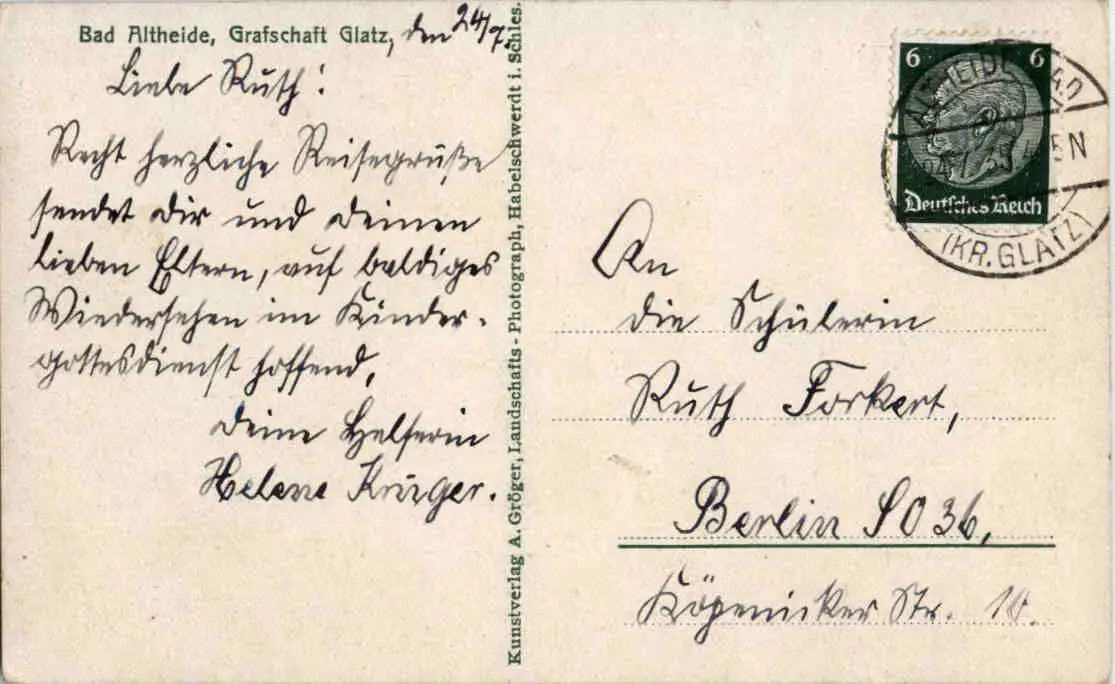 Bad Altheide, Grafschaft Glatz, den 24/7.
Liebe Ruth!
Recht herzliche Reisegrüße
sendet Dir und Deinen
lieben Eltern, auf baldiges
Wiedersehen im Kinder-
gottesdienst hoffend,
Deine Helferin
Helene Krüger.
Kunstverlag A. Gröger, Landschafts-Photograph, Habelschwerdt i. Schles.
6 6
Deutsches Reich
ALTHEIDE BAD
N
(KR. GLATZ)
An
die Schülerin
Ruth Forkert,
Berlin SO 36,
Köpenicker Str. 10.